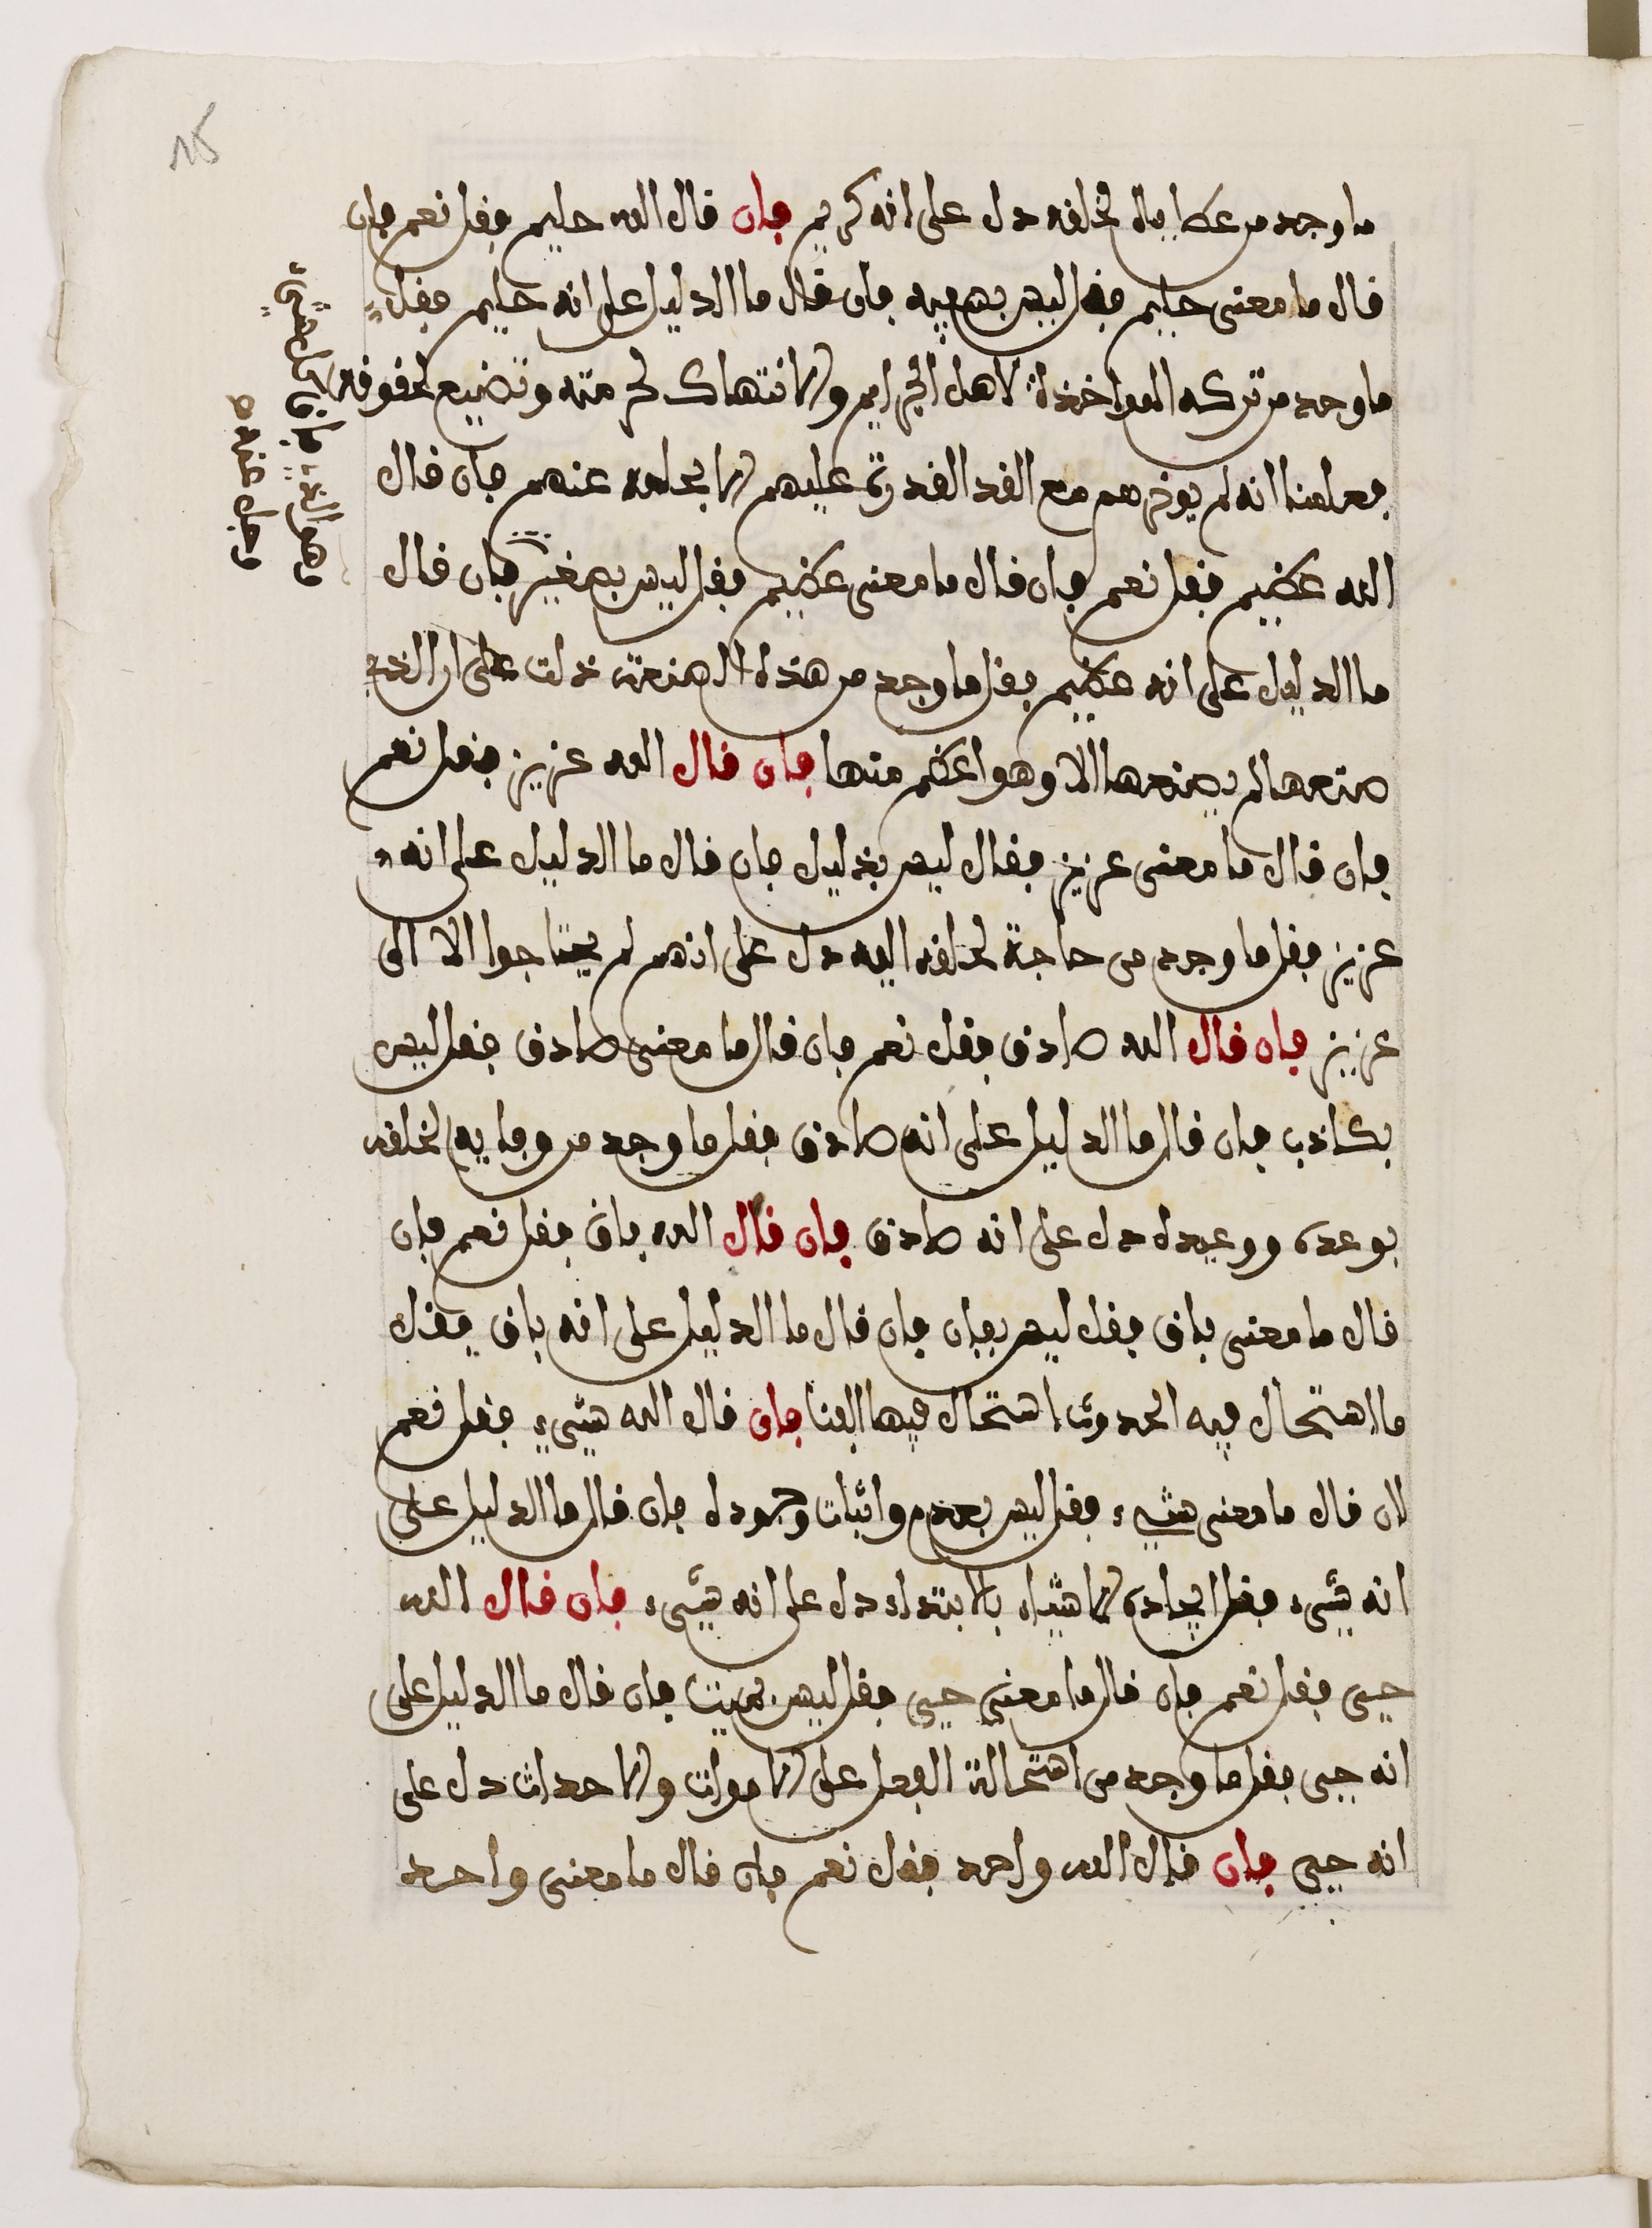 ما وجد من عطاياه لخلفه دل على انه كريم فان قال الله حليم فقل نعم فان
قال ما معنى حليم فقل ليس بسفيه فان قال ما الدليل على انه حليم فقل
ما وجد من تركه المواخذة لاهل الجرايم والانتهاك لحرمته وتضييع لحقوقه
فعلمنا انه لم يوخرهم مع القد القدرة عليهم الا بحلمه عنهم فان قال
الله عظيم فقل نعم فان قال ما معنى عظيم فقل ليس بصغير فان قال
ما الدليل على انه عظيم فقل ما وجد من هذه الصنعة دلت على ان الذي
صنعها لم يصنعها الا وهو اعظم منها فان قال الله عزيز فقل نعم
فان قال ما معنى عزيز فقال ليس بذليل فان قال ما الدليل على انه
عزيز فقل ما وجد من حاجة لخلقه اليه دل على انهم لم يحتاجوا الا الى
عزيز فان قال الله صادق فقل نعم فان قال ما معنى صادق فقل ليس
بكاذب فان قال ما الدليل على انه صادق فقل ما وجد من وفايه لخلقه
بوعده ووعيده دل على انه صادق فان قال الله باق فقل نعم فان
قال ما معنى باق فقل ليس بفان فان قال ما الدليل على انه باق فقل
ما استحال فيه الحدوث استحال فيها الفنا فان قال الله شيء فقل نعم
فان قال ما معنى شيء فقل ليس بعدم واثبات وجوده فان قال ما الدليل على
انه شيء فقل ايجاده الاشياء بالابتداء دل على انه شيء فان قال الله
حيي فقل نعم فان قال ما معنى حيي فقل ليس بميت فان قال ما الدليل على
انه حيي فقل ما وجد من استحالة الفعل على الاموات والاحداث دل على
انه حيي فان قال الله واحد فقل نعم فان قال ما معنى واحد